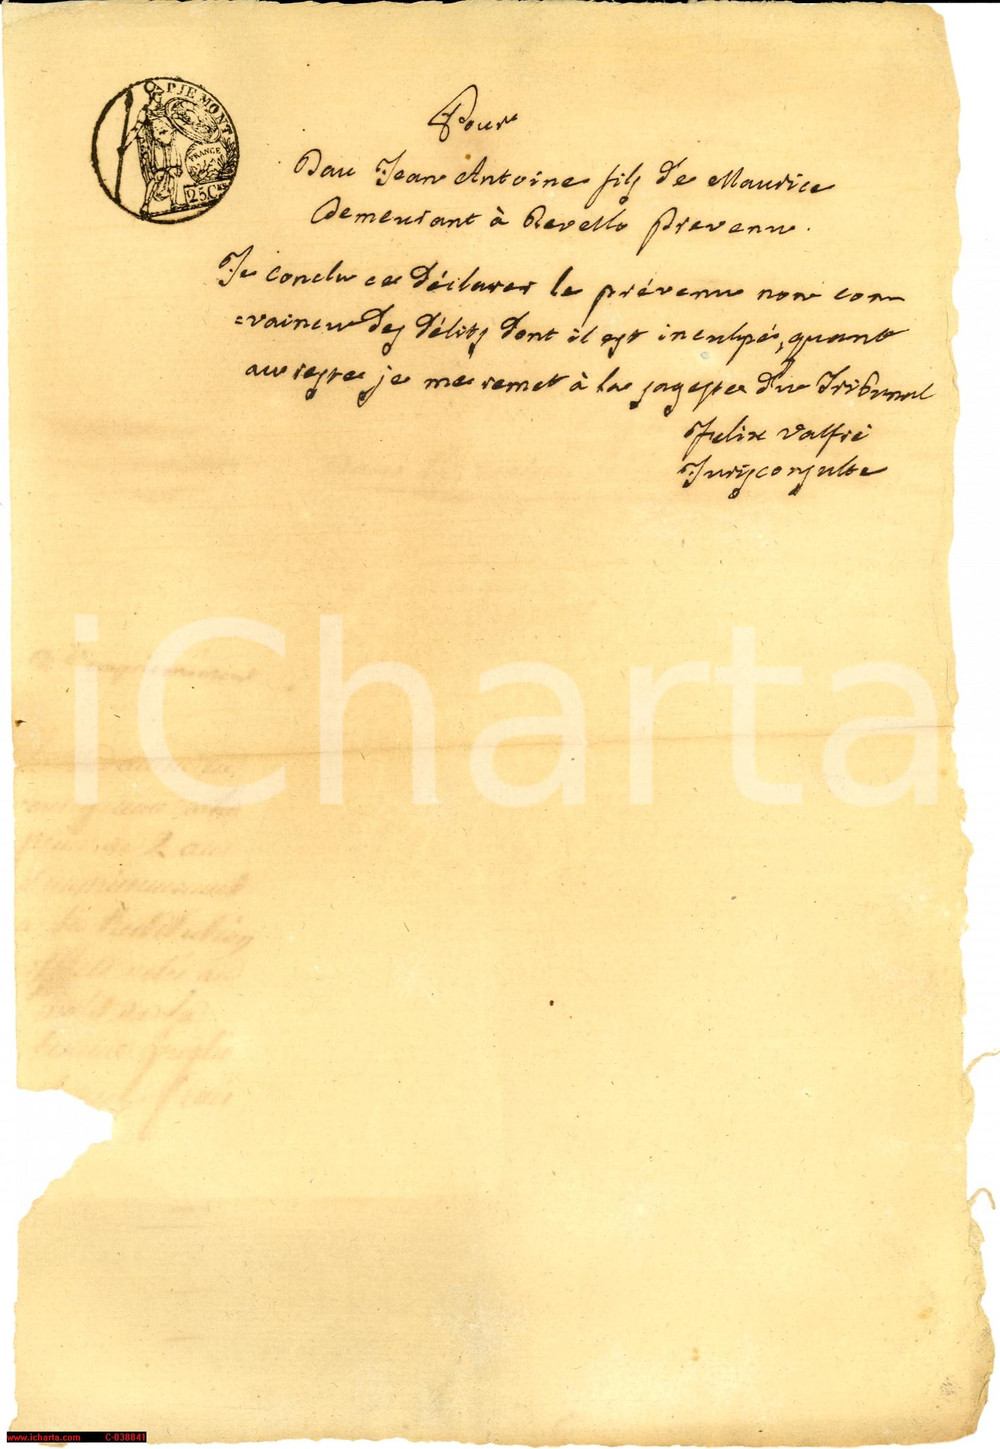 PIEMONT
FRANCE
25 C.
Pour
Dau Jean Antoine fils de Maurice
demeurant à Revello prevenu.
Je conclu ce déclarer le prévenu non con-
=vaincu des délits dont il est inculpé, quant
au reste je me remet à la sagesse du Tribunal
Felix Valfré
Jurisconsulte
iCharta
www.icharta.com C-038841